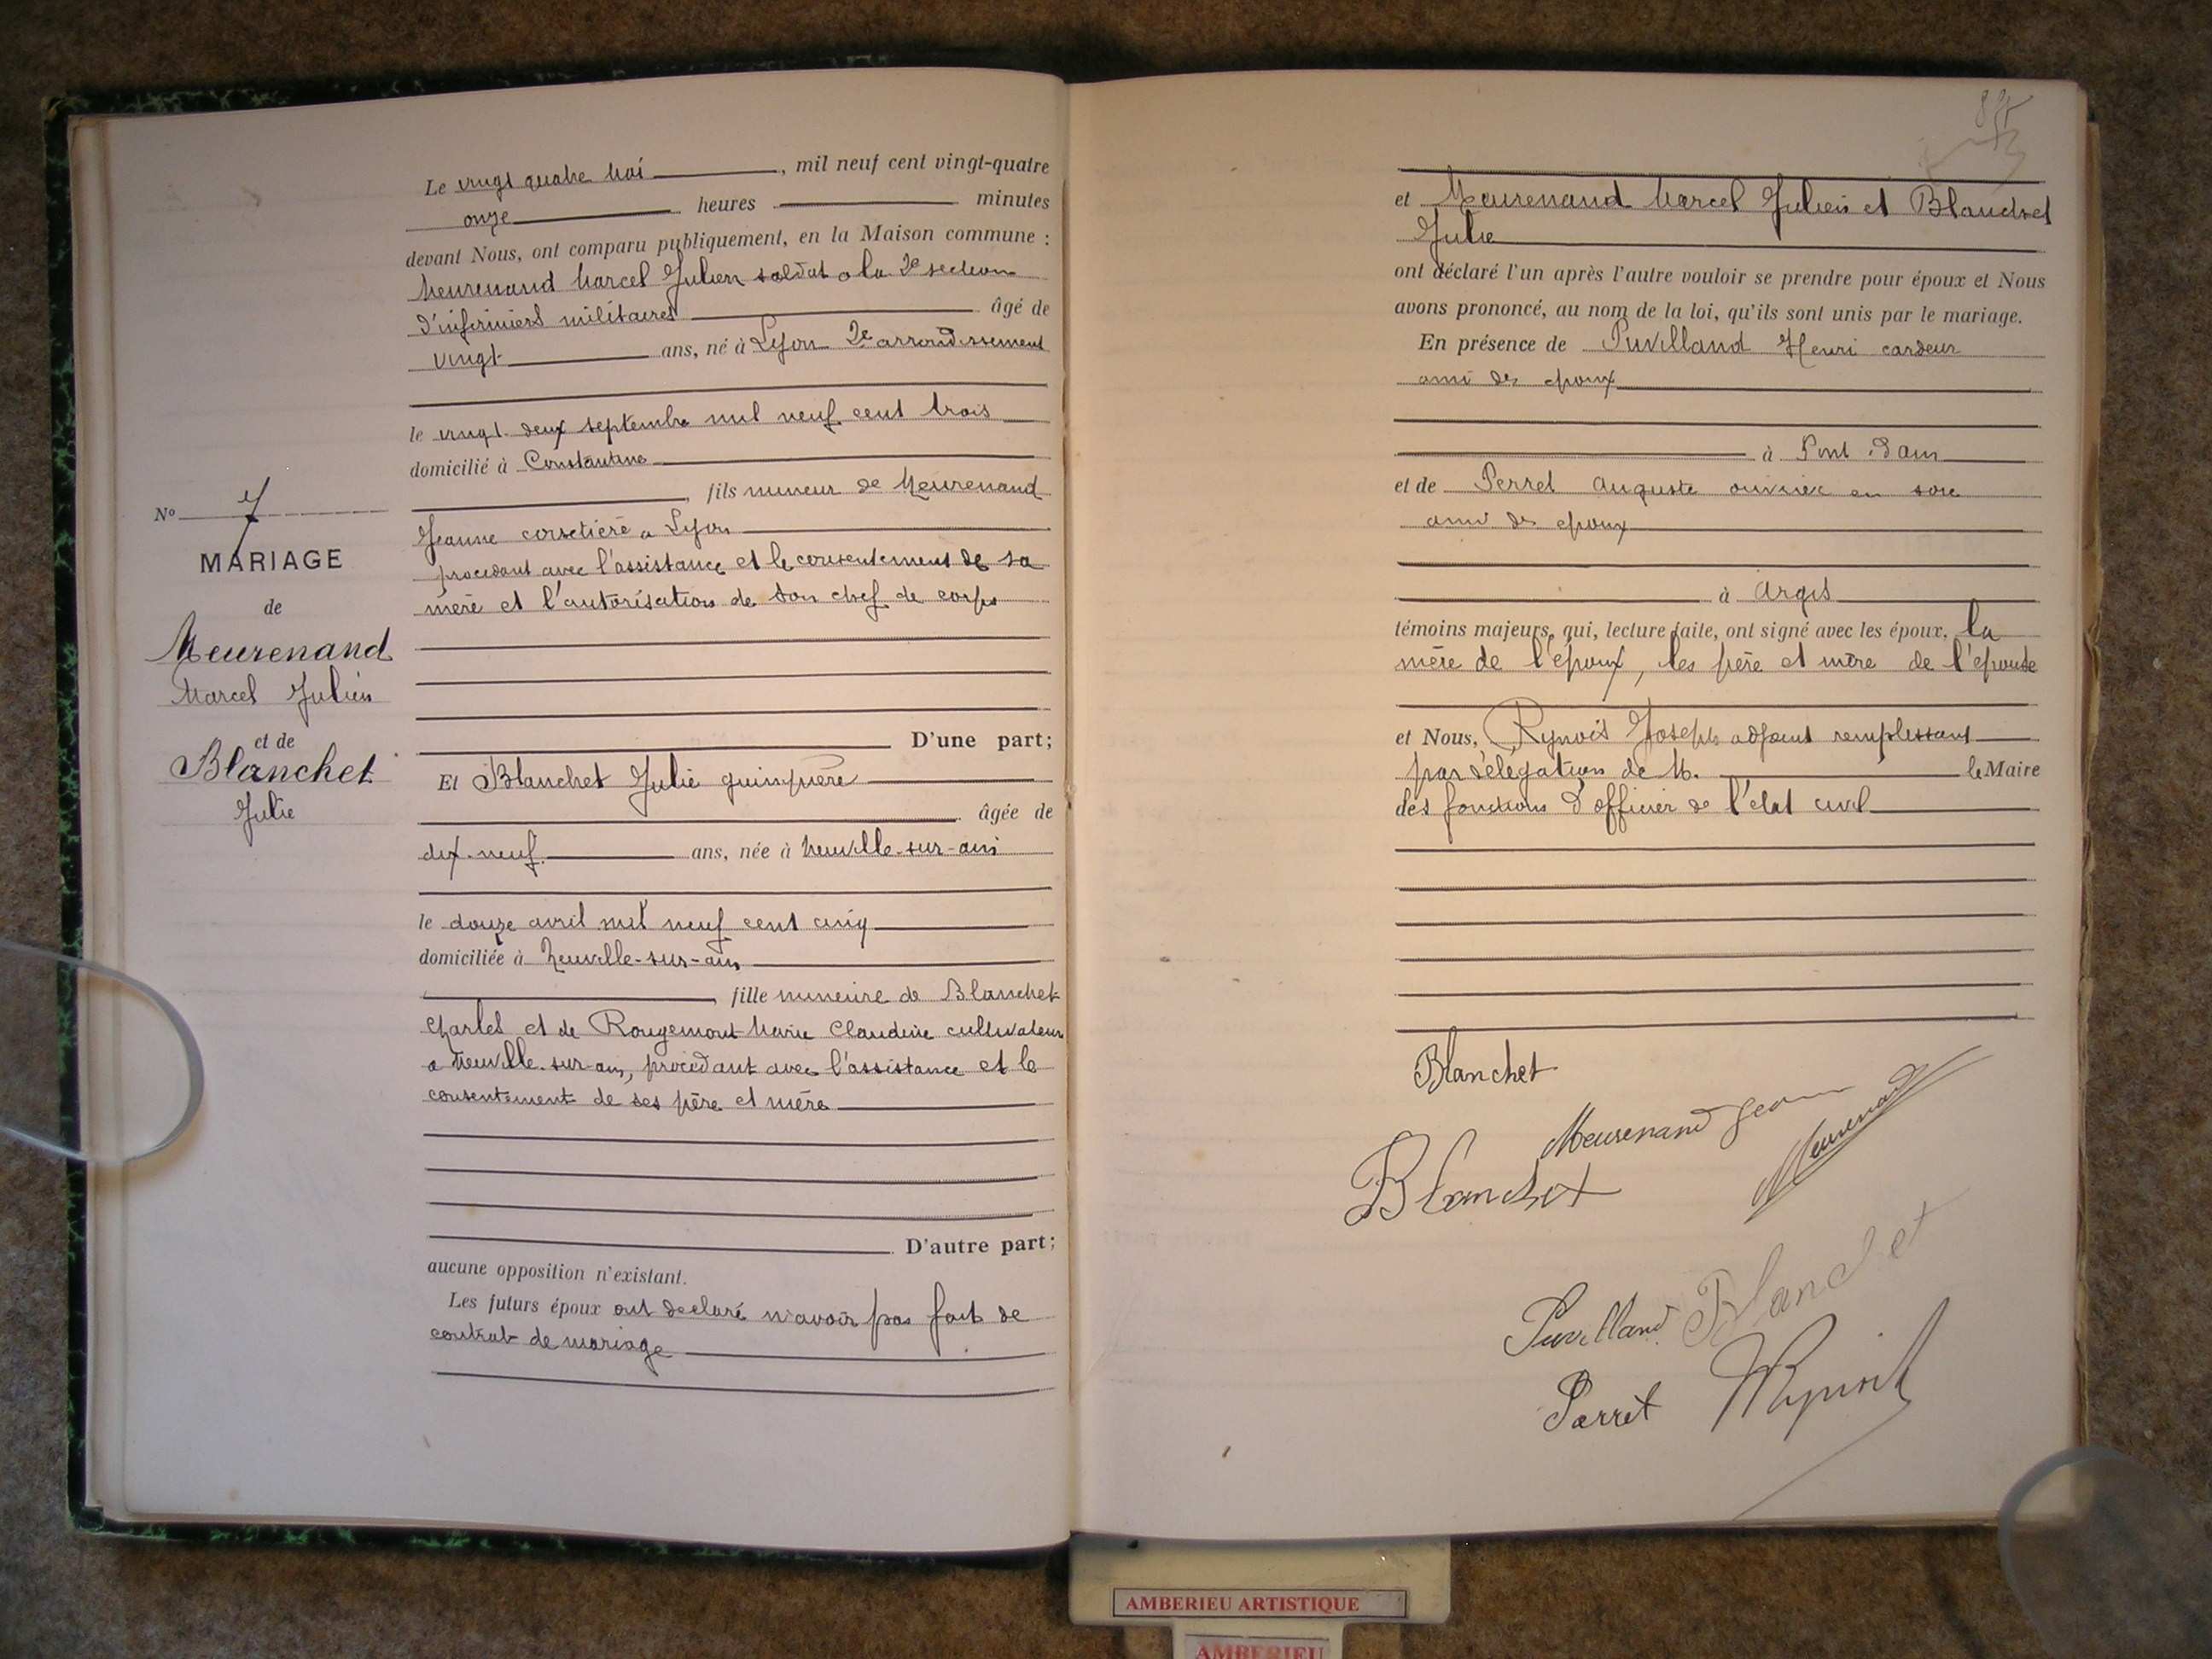 Le vingt quatre Mai, mil neuf cent vingt-quatre
onze heures minutes
devant Nous, ont comparu publiquement, en la Maison commune :
Meurenand Marcel Julien soldat a la 2e section
d'infirmiers militaires âgé de
vingt ans, né à Lyon 2e arrondissement
le vingt-deux septembre mil neuf cent trois
domicilié à Constantine
, fils mineur de Meurenand
Jeanne corsetière a Lyon
procédant avec l'assistance et le consentement de sa
mère et l'autorisation de son chef de corps
D'une part;
Et Blanchet Julie guimpière
âgée de
dix-neuf ans, née à Neuville-sur-ain
le douze avril mil neuf cent cinq
domiciliée à Neuville-sur-ain
, fille mineure de Blanchet
Charles et de Rougemont Marie Claudine cultivateurs
a Neuville-sur-ain, procédant avec l'assistance et le
consentement de ses père et mère
D'autre part;
aucune opposition n'existant.
Les futurs époux ont declaré n'avoir pas fait de
contrat de mariage
No 7
MARIAGE
de
Meurenand
Marcel Julien
et de
Blanchet
Julie
et Meurenand Marcel Julien et Blanchet
Julie
ont déclaré l'un après l'autre vouloir se prendre pour époux et Nous
avons prononcé, au nom de la loi, qu'ils sont unis par le mariage.
En présence de Puvilland Henri cardeur
ami des epoux
à Pont d'ain
et de Perret Auguste ouvrier en soie
ami des epoux
à Argis
témoins majeurs, qui, lecture faite, ont signé avec les époux, la
mère de l'époux, les père et mère de l'epouse
et Nous, Rynois Joseph adjoint remplissant
par délégation de M. le Maire
des fonctions d'officier de l'état civil
Blanchet
Meurenand Jeanne
Meurenand
Blanchet
Blanchet
Puvilland
Perret
AMBERIEU ARTISTIQUE
AMBERIEU